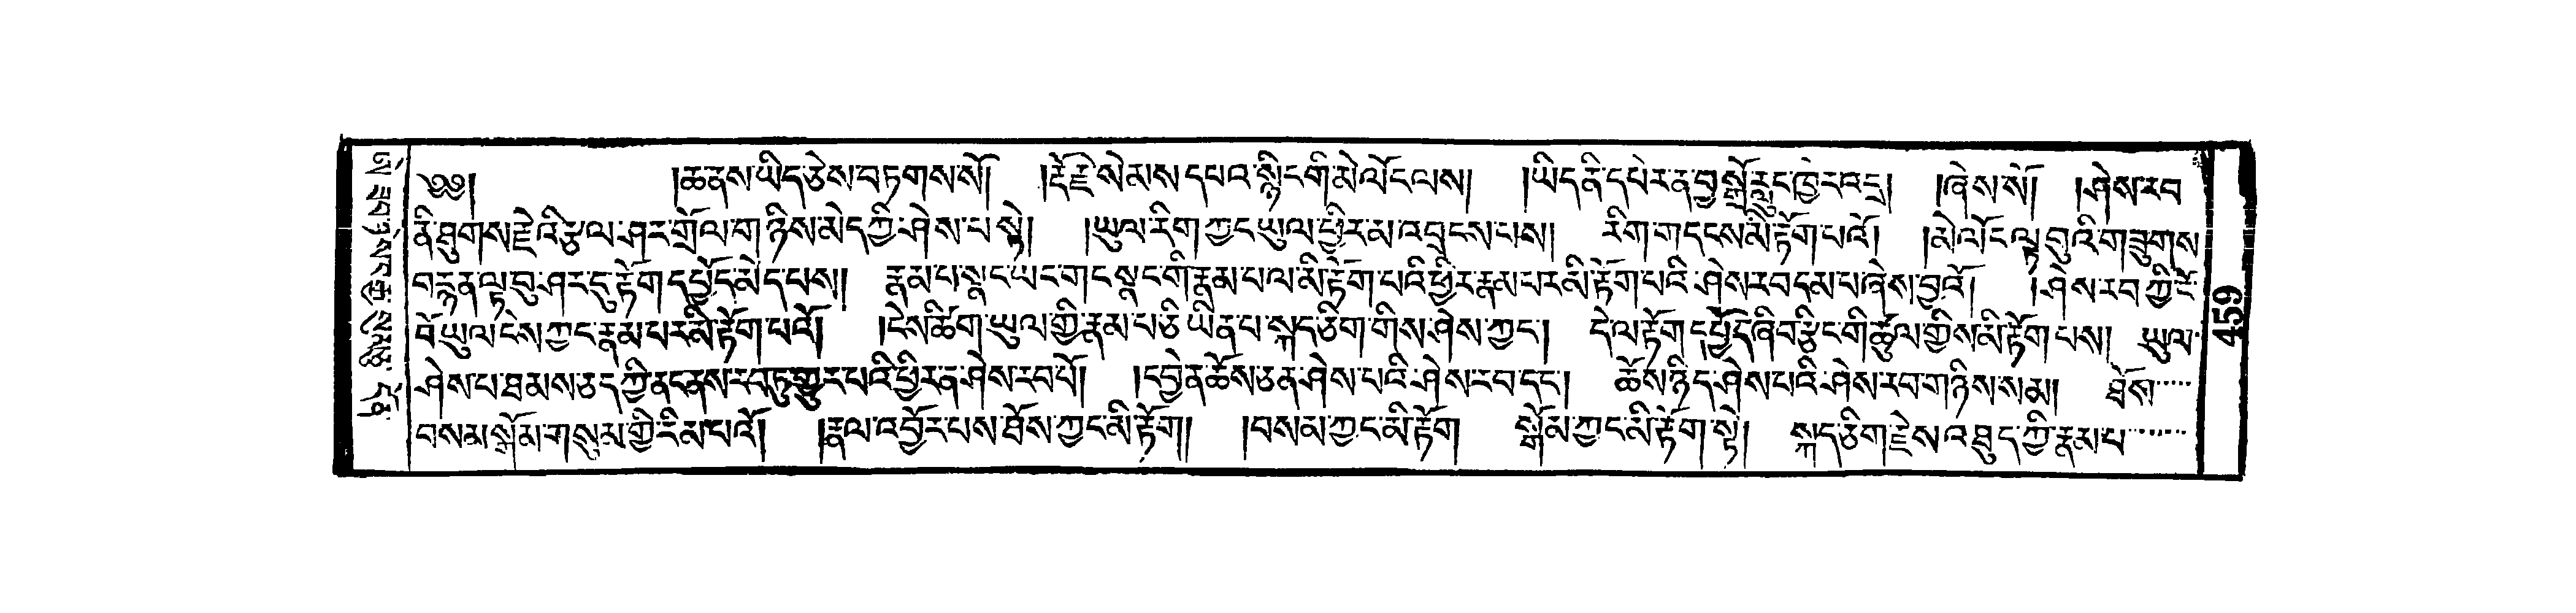 ༄༅།  །ཆ་ནས་ཡིད་ཅེས་བཏགས་སོ།  །རྡོ་རྗེ་སེམས་དཔའ་སྙིང་གི་མེ་ལོང་ལས།  །ཡིད་ནི་དཔེར་ན་བྱ་སྒྲོ་རླུང་ཁྱེར་འདྲ།  །ཞེས་སོ།  །ཤེས་རབ
ནི་ཐུགས་རྗེའི་རྩལ་ཤར་གྲོལ་གཉིས་མེད་ཀྱི་ཤེས་པ་སྟེ།  །ཡུལ་རིག་ཀྱང་ཡུལ་ཕྱིར་མ་འབྲངས་པས།  རིག་གདངས་མི་རྟོག་པའོ།  །མེ་ལོང་ལྟ་བུའི་གཟུགས
བརྙན་ལྟ་བུ་ཤར་དུ་རྟོག་དཔྱོད་མེད་པས།།  རྣམ་པ་སྣང་ཡང་གང་སྣང་གི་རྣམ་པལ་མི་རྟོག་པའི་ཕྱིར་རྣམ་པར་མི་རྟོག་པའི་ཤེས་རབ་དམ་པ་ཞེས་བྱའོ།  །ཤེས་རབ་ཀྱི་ངོ་
བོ་ཡུལ་ངེས་ཀྱང་རྣམ་པར་མི་རྟོག་པའོ།  །ངེས་ཚིག་ཡུལ་གྱི་རྣམ་པ་ཅི་ཡིན་པ་སྐད་ཅིག་གིས་ཤེས་ཀྱང་།  དེ་ལ་རྟོག་དཔྱོད་ཞིབ་རྩིང་གི་ཚུལ་གྱིས་མི་རྟོག་པས།  ཡུལ་
ཤེས་པ་ཐམས་ཅད་ཀྱི་ནང་ནས་རབ་ཏུ་གྱུར་པའི་ཕྱིར་ན་ཤེས་རབ་པོ།  །དབྱེ་ན་ཆོས་ཅན་ཤེས་པའི་ཤེས་རབ་དང་།  ཆོས་ཉིད་ཤེས་པའི་ཤེས་རབ་གཉིས་སམ།  ཐོས་
བསམ་སྒོམ་གསུམ་གྱི་རིམ་པའོ།  །རྣལ་འབྱོར་པས་ཐོས་ཀྱང་མི་རྟོག།  །བསམ་ཀྱང་མི་རྟོག  སྒོམ་ཀྱང་མི་རྟོག་སྟེ།  སྐད་ཅིག་རྗེས་འཐུད་ཀྱི་རྣམ་པ